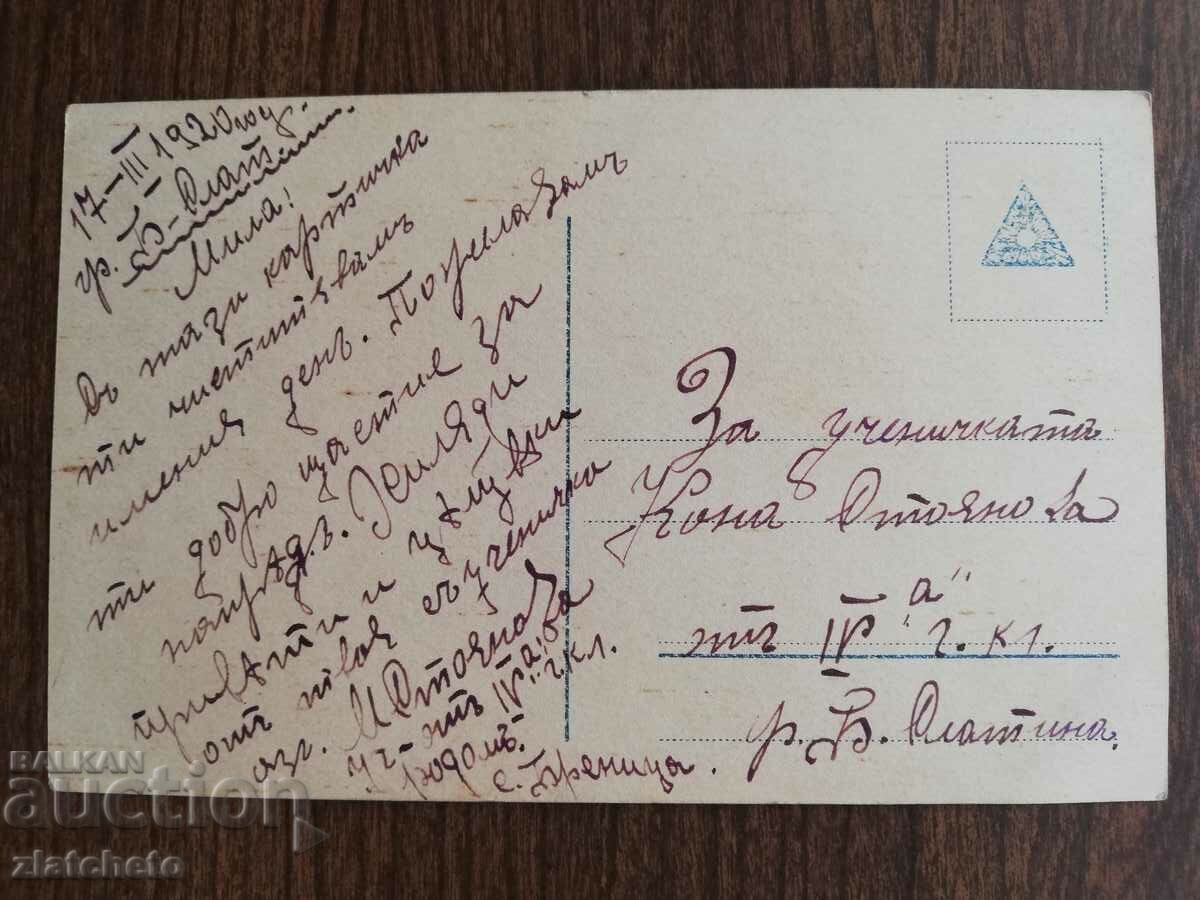 17-III 1920 год.
гр. Б-Слат.
Мила!
Съ тази картичка
ти чиститявамъ
именния день. Пожелавамъ
ти добро щастие за
напрядъ. Хиляди
привѣти и цѣлувки
отъ твоя съученичка
М Стоянова
уч. отъ IV "а" г. кл.
родомъ.
с. Търница.
За ученичката
Кона Стоянова
отъ IV "а" г. кл.
гр. Б. Слатина.
BALKAN
auction
zlatcheto